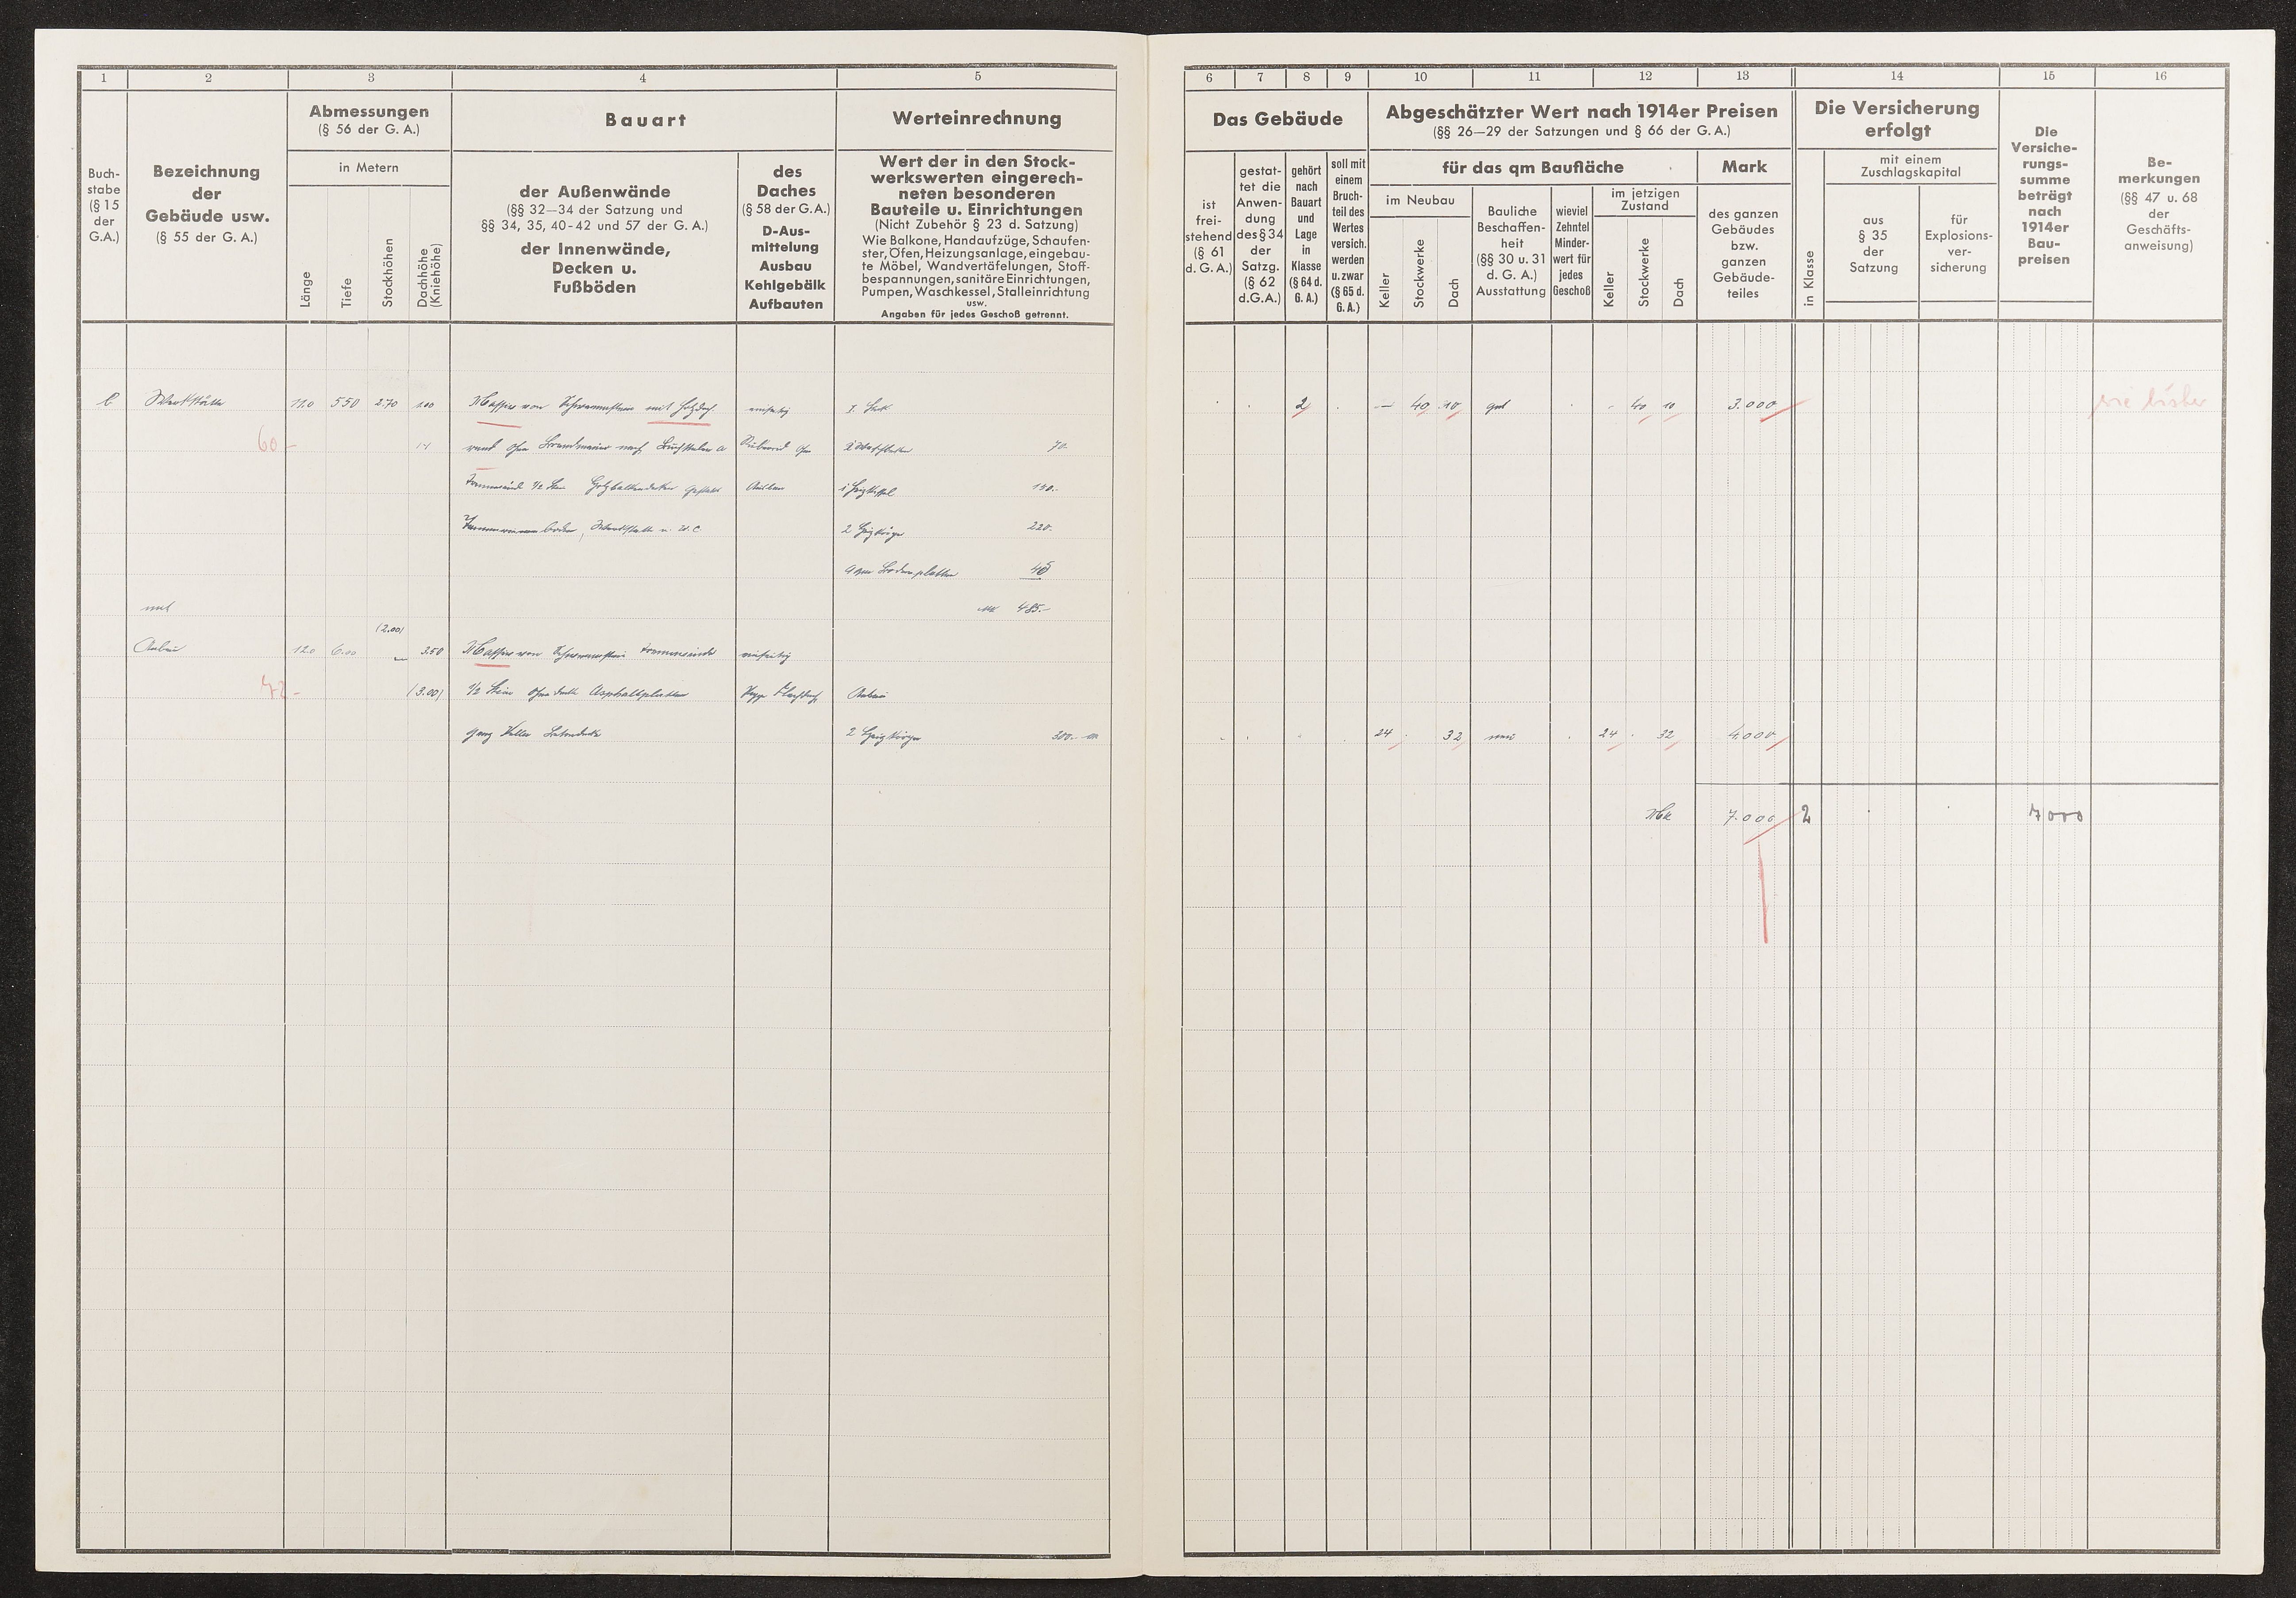 1 2 3 4 5
Buch-
stabe
(§ 15
der
G.A.)
Bezeichnung
der
Gebäude usw.
(§ 55 der G. A.)
Abmessungen
(§ 56 der G. A.)
in Metern
Länge
Tiefe
Stockhöhen
Dachhöhe
(Kniehöhe)
Bauart
der Außenwände
(§§ 32—34 der Satzung und
§§ 34, 35, 40-42 und 57 der G. A.)
der Innenwände,
Decken u.
Fußböden
des
Daches
(§ 58 der G. A.)
D-Aus-
mittelung
Ausbau
Kehlgebälk
Aufbauten
Werteinrechnung
Wert der in den Stock-
werkswerten eingerech-
neten besonderen
Bauteile u. Einrichtungen
(Nicht Zubehör § 23 d. Satzung)
Wie Balkone, Handaufzüge, Schaufen-
ster, Öfen, Heizungsanlage, eingebau-
te Möbel, Wandvertäfelungen, Stoff-
bespannungen, sanitäre Einrichtungen,
Pumpen, Waschkessel, Stalleinrichtung
usw.
Angaben für jedes Geschoß getrennt.
Werkstätte 11.0 5.50 2.70 1.00 Massiv von Schwemmstein mit Holzdach einhütig 1. Stock
60 – 14 wand ohne Brandmauer nach Buchstabe a 70.-
1/2 Stein Holzbalkendecken 150.-
boden, Werkstatt u. W.C 2 220.-
9 qm Bodenplatten 45
und Mk 485.-
(2.00)
Anbau 12.0 6.00 – 3.50 Massiv von Schwemmstein einhütig
72 – (3.00) 1/2 Stein Asphaltplatten Anbau
ganz Keller Betondecke 2 300.- m
6 7 8 9 10 11 12 13 14 15 16
Das Gebäude
ist
frei-
stehend
(§ 61
d. G. A.)
gestat-
tet die
Anwen-
dung
des § 34
der
Satzg.
(§ 62
d.G.A.)
gehört
nach
Bauart
und
Lage
in
Klasse
(§ 64 d.
G. A.)
soll mit
einem
Bruch-
teil des
Wertes
versich.
werden
u. zwar
(§ 65 d.
G. A.)
Abgeschätzter Wert nach 1914er Preisen
(§§ 26—29 der Satzungen und § 66 der G. A.)
für das qm Baufläche
im Neubau
Keller
Stockwerke
Dach
Bauliche
Beschaffen-
heit
(§§ 30 u. 31
d. G. A.)
Ausstattung
wieviel
Zehntel
Minder-
wert für
jedes
Geschoß
im jetzigen
Zustand
Keller
Stockwerke
Dach
Mark
des ganzen
Gebäudes
bzw.
ganzen
Gebäude-
teiles
Die Versicherung
erfolgt
in Klasse
mit einem
Zuschlagskapital
aus
§ 35
der
Satzung
für
Explosions-
ver-
sicherung
Die
Versiche-
rungs-
summe
beträgt
nach
1914er
Bau-
preisen
Be-
merkungen
(§§ 47 u. 68
der
Geschäfts-
anweisung)
2 – 40 10 gut – 40 10 3.000 wie bisher
24 32 neu 24 32 4.000
Mk 7.000 2 7000